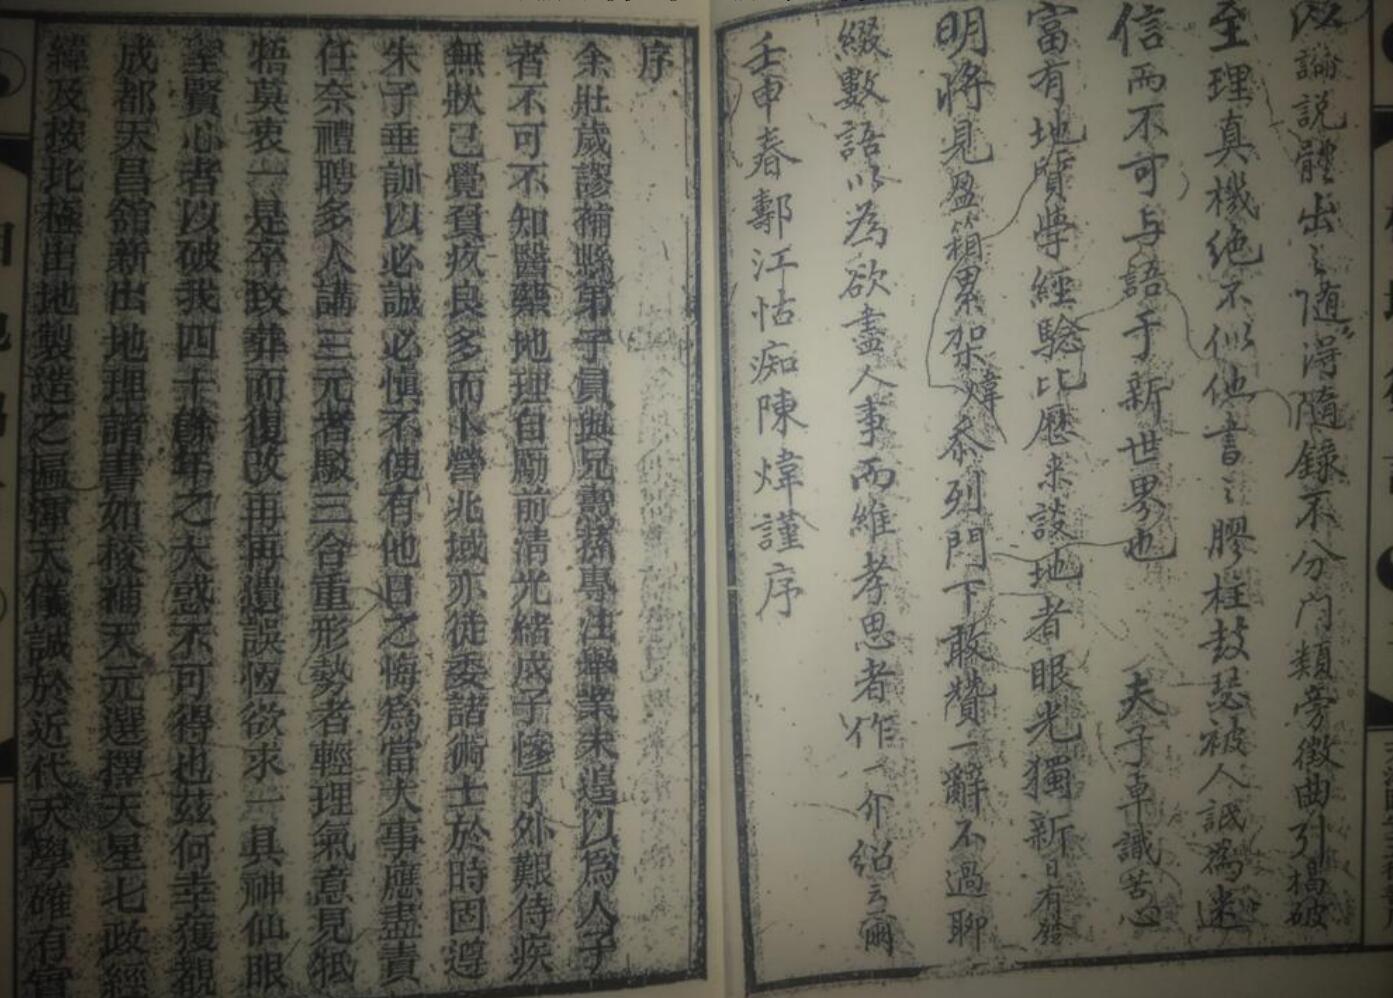 以論說體出之隨得隨錄不分门類旁徵曲引揭破
至理真機絶不似他書之膠柱鼓瑟被人詆為迷
信而不可与語于新世界也　夫子卓識苦心
富有地質學經驗比歷来談地者眼光獨新日有發
明將見盈箱累架煒忝列門下敢贊一辭不過聊
綴數語以為欲盡人事而維孝思者作一介紹云爾
壬申春鄞江怙痴陳煒謹序
序
余壯歲謬補縣弟子員與兄壽蓀專注舉業未遑以爲人子
者不可不知醫藥地理自勵前清光緒戊子慘丁外艱侍疾
無狀已覺負疚良多而卜營兆域亦徒委諸術士於時固遵
朱子垂訓以必誠必慎不使有他日之悔爲當大事應盡責
任奈禮聘多人講三元者駁三合重形勢者輕理氣意見牴
牾莫衷一是卒致葬而復改再再遺誤恆欲求一具神仙眼
聖賢心者以破我四十餘年之大惑不可得也茲何幸獲覩
成都天昌舘新出地理諸書如校補天元選擇天星七政經
緯及按北極出地製造之區渾天儀誠於近代天學確有實